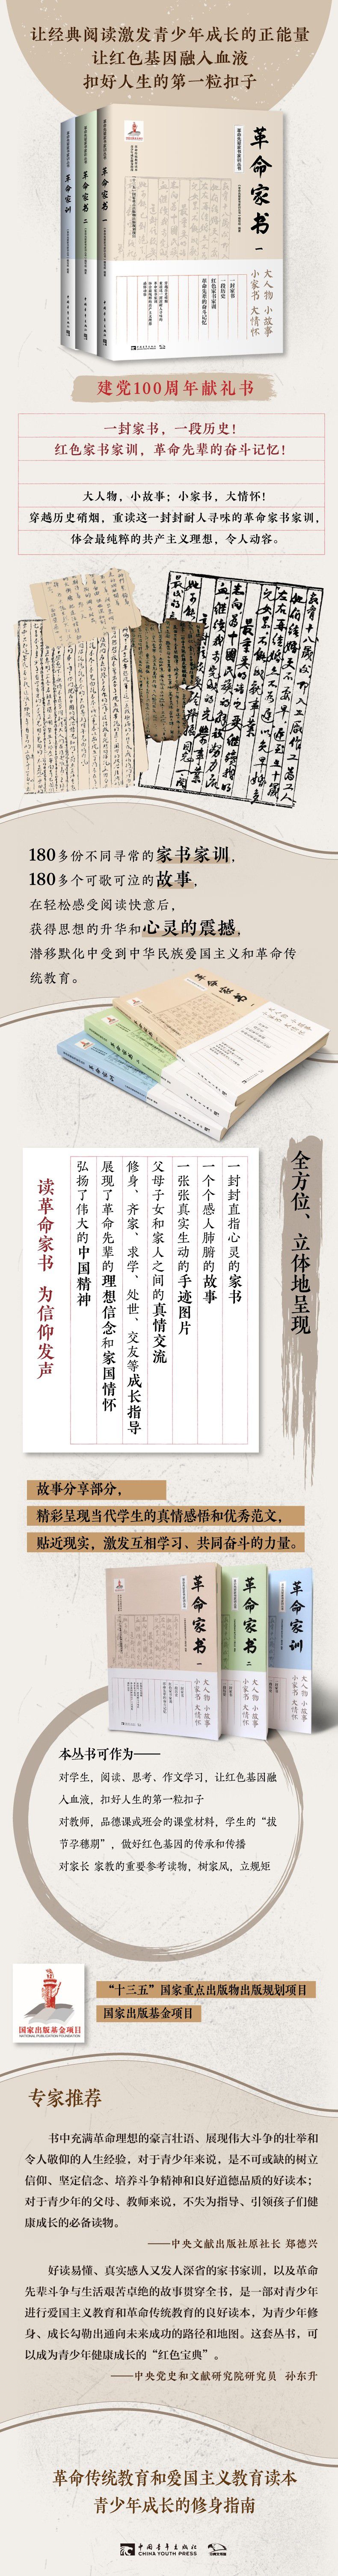 让经典阅读激发青少年成长的正能量
让红色基因融入血液
扣好人生的第一粒扣子
革命家训
革命家书 二
革命家书 一
大人物 小故事
小家书 大情怀
一封家书
一段历史
红色家书家训
革命先辈的奋斗记忆
建党100周年献礼书
一封家书，一段历史！
红色家书家训，革命先辈的奋斗记忆！
大人物，小故事；小家书，大情怀！
穿越历史硝烟，重读这一封封耐人寻味的革命家书家训，
体会最纯粹的共产主义理想，令人动容。
180多份不同寻常的家书家训，
180多个可歌可泣的故事，
在轻松感受阅读快意后，
获得思想的升华和心灵的震撼，
潜移默化中受到中华民族爱国主义和革命传
统教育。
革命家书 一
大人物 小故事
小家书 大情怀
全方位、立体地呈现
一封封直指心灵的家书
一个个感人肺腑的故事
一张张真实生动的手迹图片
父母子女和家人之间的真情交流
修身、齐家、求学、处世、交友等成长指导
展现了革命先辈的理想信念和家国情怀
弘扬了伟大的中国精神
读革命家书 为信仰发声
故事分享部分，
精彩呈现当代学生的真情感悟和优秀范文，
贴近现实，激发互相学习、共同奋斗的力量。
革命家书 一
大人物 小故事
小家书 大情怀
革命家书 二
大人物 小故事
小家书 大情怀
革命家训
大人物 小故事
小家书 大情怀
本丛书可作为——
对学生，阅读、思考、作文学习，让红色基因融
入血液，扣好人生的第一粒扣子
对教师，品德课或班会的课堂材料，学生的“拔
节孕穗期”，做好红色基因的传承和传播
对家长 家教的重要参考读物，树家风，立规矩
国家出版基金项目
NATIONAL PUBLICATION FOUNDATION
“十三五”国家重点出版物出版规划项目
国家出版基金项目
专家推荐
书中充满革命理想的豪言壮语、展现伟大斗争的壮举和
令人敬仰的人生经验，对于青少年来说，是不可或缺的树立
信仰、坚定信念、培养斗争精神和良好道德品质的好读本；
对于青少年的父母、教师来说，不失为指导、引领孩子们健
康成长的必备读物。
——中央文献出版社原社长 郑德兴
好读易懂、真实感人又发人深省的家书家训，以及革命
先辈斗争与生活艰苦卓绝的故事贯穿全书，是一部对青少年
进行爱国主义教育和革命传统教育的良好读本，为青少年修
身、成长勾勒出通向未来成功的路径和地图。这套丛书，可
以成为青少年健康成长的“红色宝典”。
——中央党史和文献研究院研究员 孙东升
革命传统教育和爱国主义教育读本
青少年成长的修身指南
中国青年出版社
CHINA YOUTH PRESS